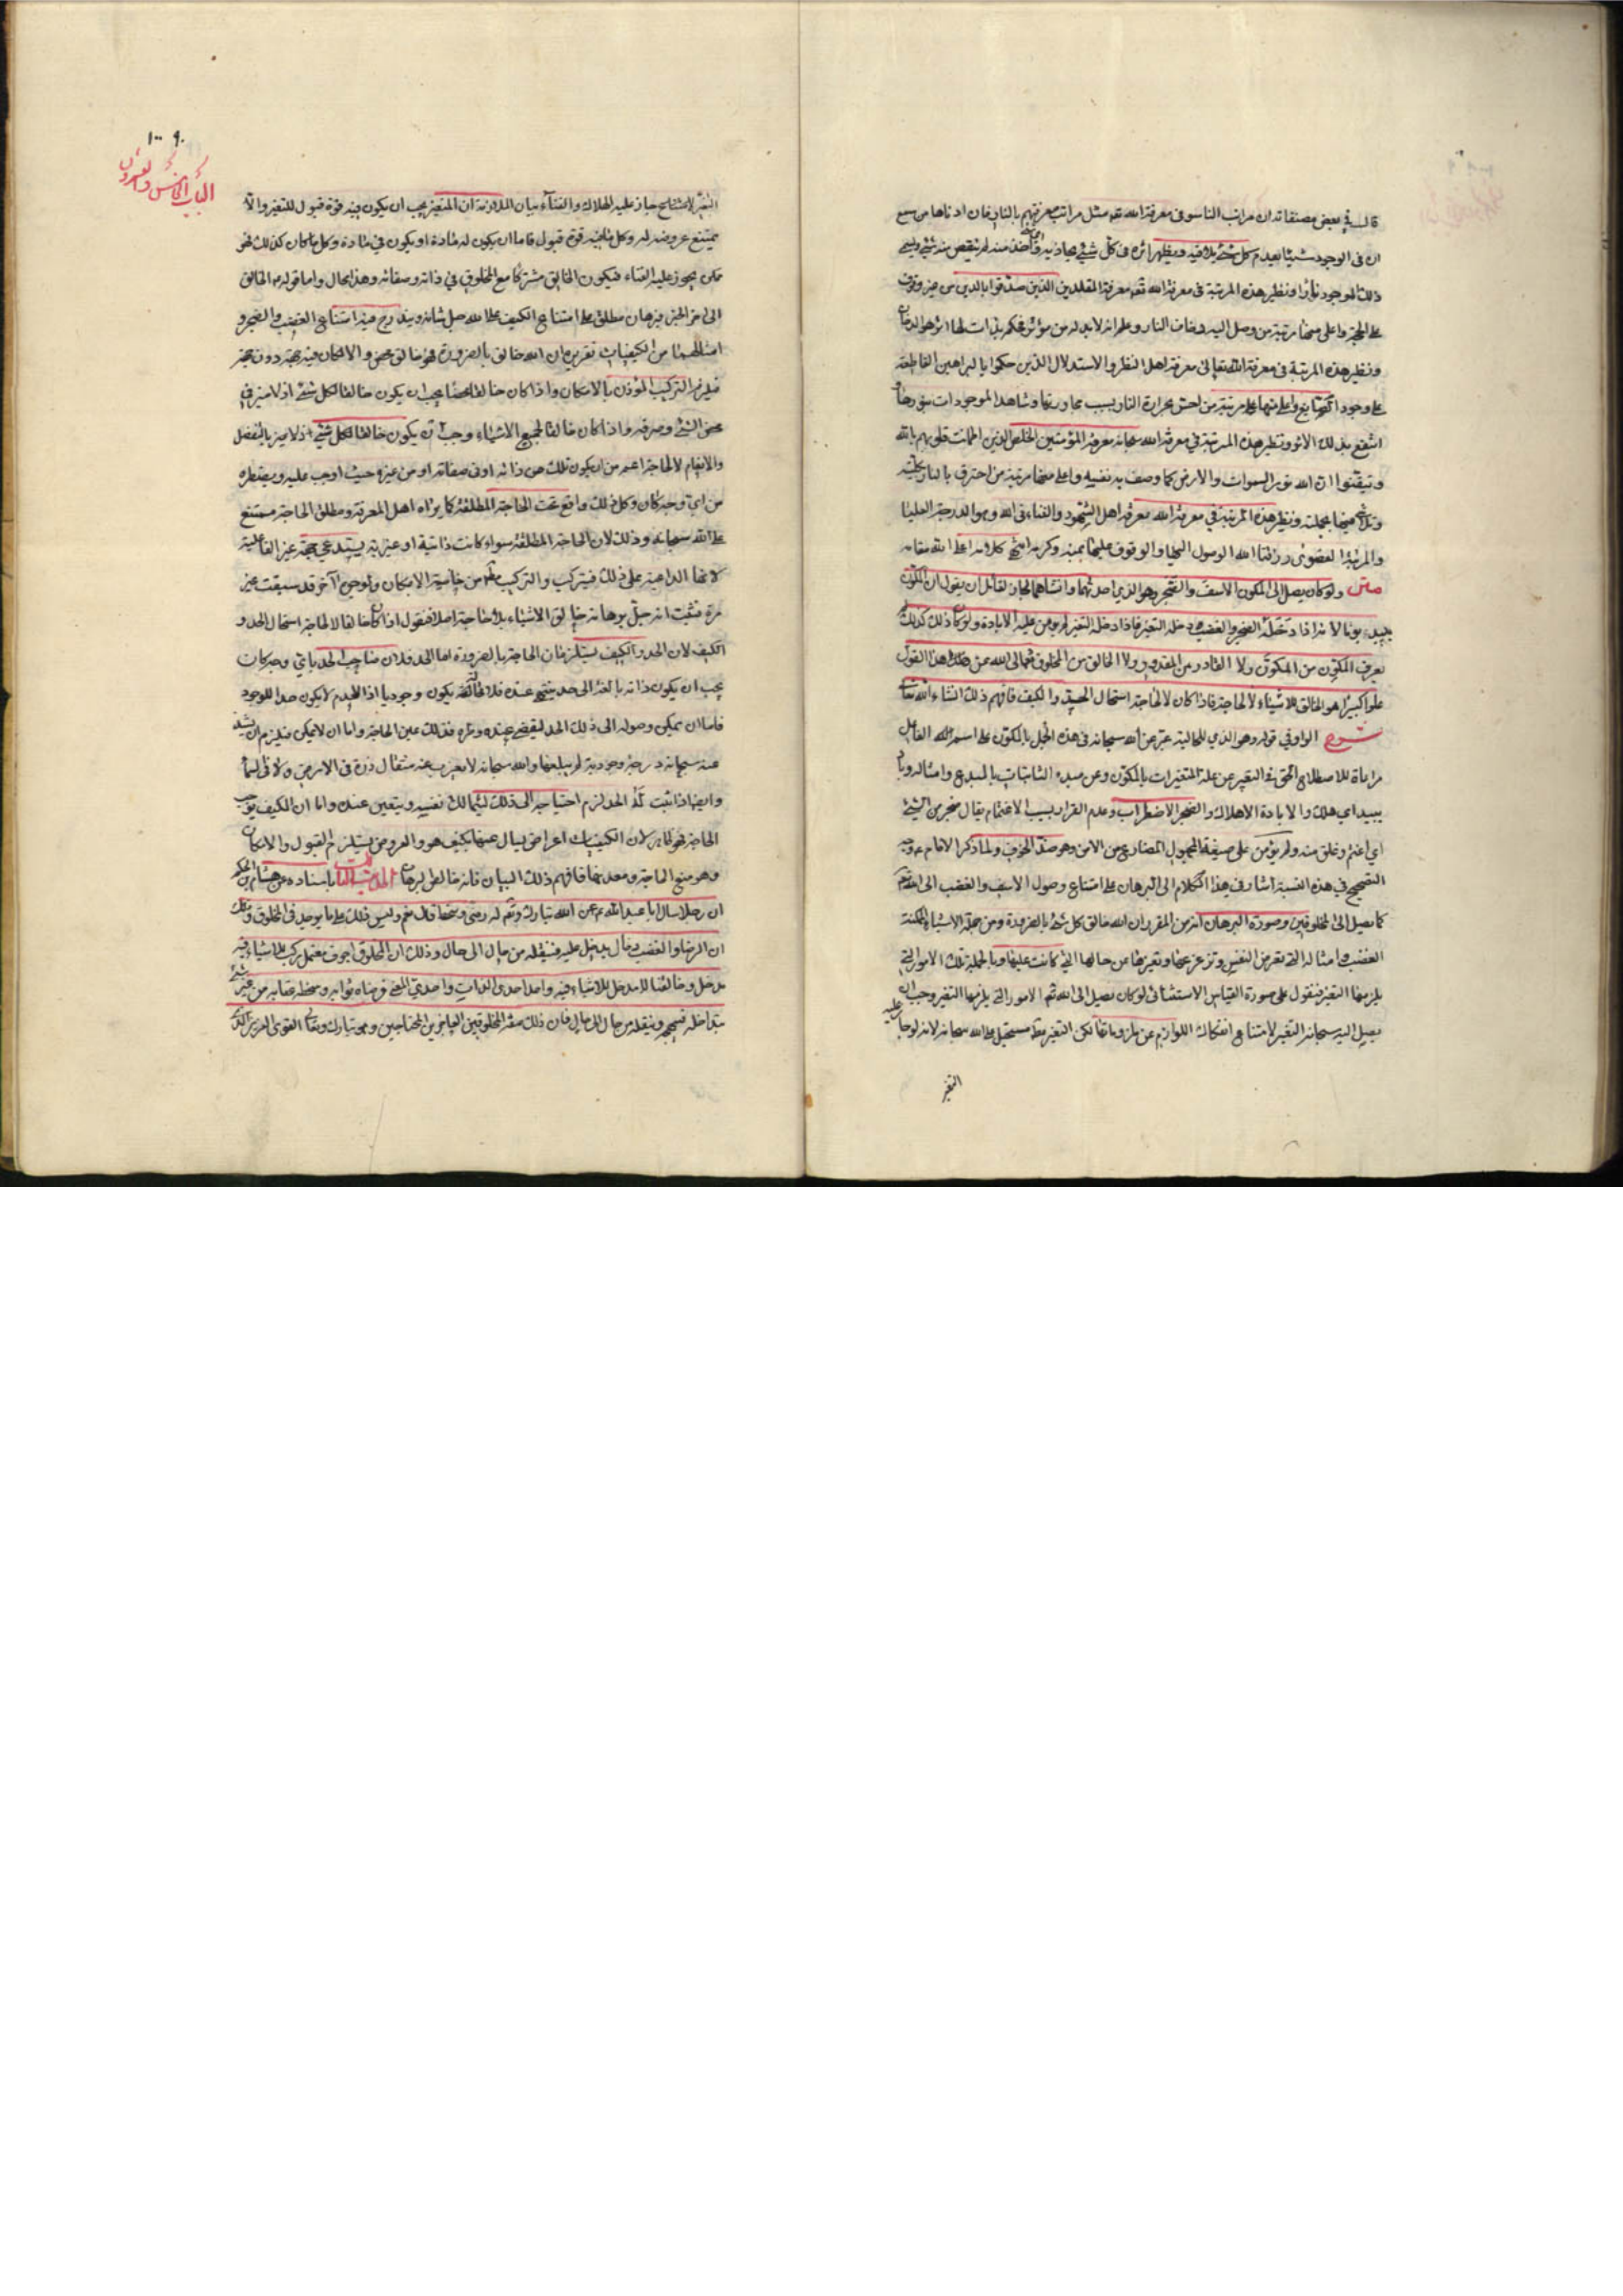 قال في بعض مصنفاته ان مراتب الناس في معرفة الله تعه مثل مراتب معرفتهم بالنار فان ادناها من سمع
ان في الوجود شيئا يعدم كل شئ يلاقيه ويظهر اثره في كل شئ يحاذيه وأي شئ أخذ منه لم ينقص منه شئ ويسمى
ذلك الموجود نارا ونظير هذه المرتبة في معرفة الله تعه معرفة المقلدين الذين صدقوا بالدين من غير وقوف
على الحجة واعلى منها مرتبة من وصل اليه دخان النار وعلم انه لابد له من مؤثر فحكم بذات لها اثر هو الدخان
ونظير هذه المرتبة في معرفة الله تعالى معرفة اهل النظر والاستدلال الذين حكموا بالبراهين القاطعة
على وجود الصانع واعلى منها مرتبة من احس بحرارة النار بسبب مجاورتها وشاهد الموجودات بنورها و
انتفع بذلك الاثر ونظير هذه المرتبة في معرفة الله سبحانه معرفة المؤمنين الخلص الذين اطمأنت قلوبهم بالله
وتيقنوا ان الله نور السموات والارض كما وصف به نفسه واعلى منها مرتبة من احترق بالنار بكليته
وتلاشى فيها بجملته ونظير هذه المرتبة في معرفة الله معرفة اهل الشهود والفناء في الله وهو الدرجة العليا
والمرتبة القصوى رزقنا الله الوصول اليها والوقوف عليها بمنه وكرمه انتهى كلامه اعلى الله مقامه
متن ولو كان يصل الى المكون الاسف والضجر وهو الذي احدثهما وانشاهما لجاز لقائل ان يقول ان المكون
يبيد يوما لانه اذا دخله الضجر والغضب دخله التغير فاذا دخله التغير لم يؤمن عليه الابادة ولو كان ذلك كذلك لم
يعرف المكون من المكون ولا القادر من المقدور ولا الخالق من المخلوق تعالى الله عن هذا القول
علوا كبيرا هو الخالق للاشياء لا لحاجة فاذا كان لا لحاجة استحال الحد والكيف فافهم ذلك انشاء الله تعالى
شرح الواو في قوله وهو الذي للحالية عبر عن الله سبحانه في هذه الجمل بالمكون على اسم الفاعل
مراعاة للاصطلاح في التعبير عن علة المتغيرات بالمكون وعن مبدء الثابتات بالمبدع وامثاله وباد
يبيد اي هلك والابادة الاهلاك والضجر الاضطراب وعدم القرار بسبب الاغتمام يقال ضجر من الشئ
اي اغتم وغلق منه ولم يؤمن على صيغة المجهول المضارع من الامن وهو ضد الخوف ولما ذكر الامام ع وجه
التصحيح في هذه النسبة اشار في هذا الكلام الى البرهان على امتناع وصول الاسف والغضب الى الله تعه
كما يصل الى المخلوقين وصورة البرهان انه من المقرر ان الله خالق كل شئ بالضرورة ومن جملة الاشياء الممكنة
الغضب وامثاله التي تعرض النفس وتزعزعها وتغيرها من حالها التي كانت عليها وبالجملة تلك الامور التي
يلزمها التغير فنقول على صورة القياس الاستثنائى لو كان يصل الى الله تعه الامور التي يلزمها التغير وجب ان
يصل اليه سبحانه التغير لامتناع انفكاك اللوازم عن ملزوماتها لكن التغير مستحيل على الله سبحانه لانه لو جاز عليه
التغير
٩٠ ١٠٠
الباب الخامس والعشرون
التغير جاز عليه الهلاك والفناء بيان الملازمة ان المتغير يجب ان يكون فيه قوة قبول للتغير والا
يمتنع عروضه له وكل ما فيه قوة قبول فاما ان يكون له مادة او يكون في مادة وكل ما كان كذلك فهو
ممن يجوز عليه الفناء فيكون الخالق مشتركا مع المخلوق في ذاته وصفاته وهذا محال واما قوله هو الخالق
الى اخر الخبر فبرهان مطلق على امتناع الكيف على الله جل شانه ويندرج فيه امتناع الغضب والضجر و
امثالهما من الكيفيات تقريره ان الله خالق بالضرورة فهو خالق محض والا لكان فيه جهة دون جهة
فيلزم التركيب المؤذن بالامكان واذا كان خالقا محضا يجب ان يكون خالقا لكل شئ اذ لا ميز في
محض الشئ وصرفه واذا كان خالقا لجميع الاشياء وجب ان يكون خالقا لكل شئ
والانعام لا لحاجة اعم من ان يكون تلك من ذاته او في صفاته او من غيره حيث اوجب عليه ويضطره
من اي وجه كان وكل ذلك واقع تحت الحاجة المطلقة كما يراه اهل المعرفة ومطلق الحاجة ممتنع
على الله سبحانه وذلك لان الحاجة المطلقة سواء كانت ذاتية او غيرية يستدعي جهة غير الفاعلية
لانها الداعية على ذلك فيتركب والتركيب من خاصية الامكان ولوجوه اخر قد سبقت غير
مرة فثبت انه جل برهانه خالق الاشياء بلا حاجة اصلا فنقول اذا كان خالقا لا لحاجة استحال الحد و
الكيف لان الحد والكيف يستلزمان الحاجة بالضرورة اما الحد فلان صاحب الحد باي وجه كان
يجب ان يكون ذاته بالغة الى حد ينتهي عنده فلا محالة يكون وجوديا اذ العدم لا يكون حدا للوجود
فاما ان يمكن وصوله الى ذلك الحد عنده وغيره فذلك عين الحاجة واما ان لا يمكن فيلزم ان يشذ
عنه سبحانه درجة وجودية لم يبلغها والله سبحانه لا يعزب عنه مثقال ذرة في الارض ولا في السماء
وايضا اذا ثبت له الحد لزم احتياجه الى ذلك نفسه ويتعين عنده واما ان الكيف يوجب
الحاجة فهو ظاهر لان الكيفيات اعراض يسال عنها بكيف هو والعروض يستلزم القبول والامكان
وهو منبع الحاجة ومعدنها فافهم ذلك البيان فانه خالص البرهان الحديث باسناده عن هشام بن الحكم
ان رجلا سال ابا عبد الله ع عن الله تبارك وتعه له رضى وسخط قال نعم وليس ذلك على ما يوجد في المخلوق وذلك
ان الرضا والغضب دخال يدخل عليه فينقله من حال الى حال وذلك ان المخلوق اجوف معتمل مركب للاشياء فيه
مدخل وخالقنا لا مدخل للاشياء فيه واحد احدى الذات واحدي المعنى فرضاه ثوابه وسخطه عقابه من غير شئ
يتداخله فيهيجه وينقله من حال الى حال فان ذلك صفة المخلوقين العاجزين المحتاجين وهو تبارك وتعالى القوى العزيز الذي